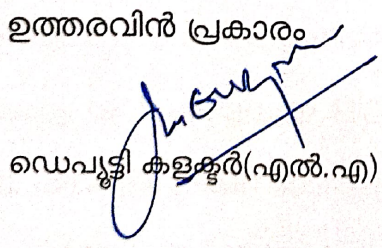 ഉത്തരവിൻ പ്രകാരം
ഡെപ്യൂട്ടി കളക്ടർ(എൽ.എ)